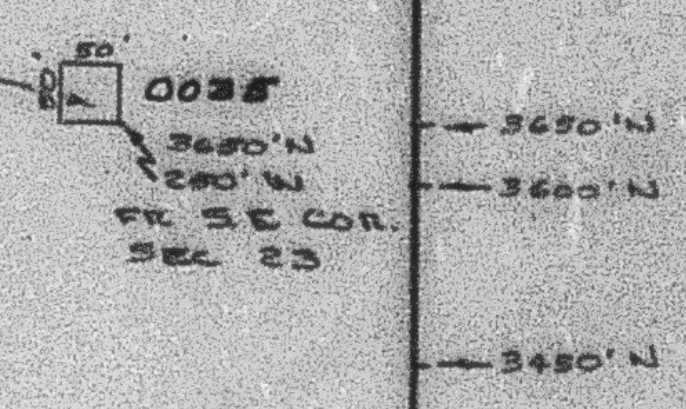 50'
50'
0035
3650'N
250' W
FR S.E COR.
SEC 23
3650'N
3600'N
3450'N